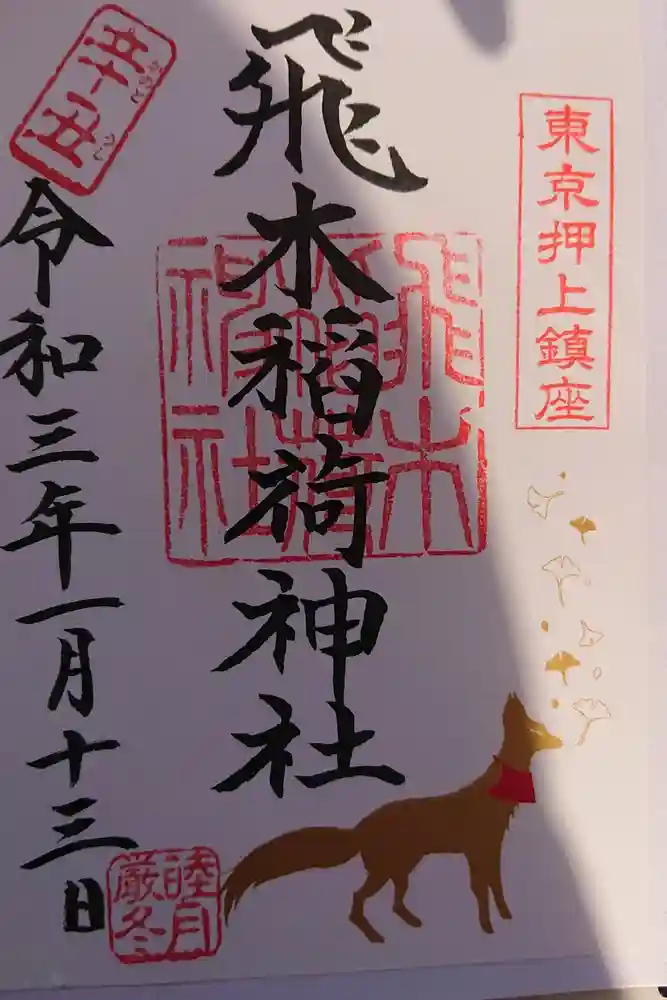 東京押上鎮座
飛木稲荷神社
飛木
稲荷
神社
辛丑
かのと
うし
令和三年一月十三日
睦月
厳冬